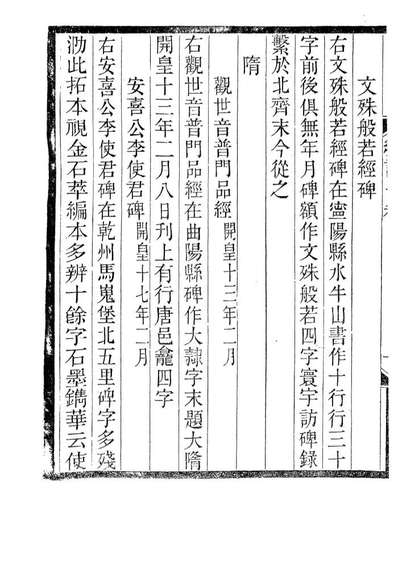 文殊般若經碑
右文殊般若經碑在寧陽縣水牛山書作十行行三十
字前後俱無年月碑額作文殊般若四字寰宇訪碑錄
繫於北齊末今從之
隋
觀世音普門品經開皇十三年二月
右觀世音普門品經在曲陽縣碑作大隸字末題大隋
開皇十三年二月八日刊上有行唐邑龕四字
安喜公李使君碑開皇十七年二月
右安喜公李使君碑在乾州馬嵬堡北五里碑字多殘
泐此拓本視金石萃編本多辨十餘字石墨鐫華云使